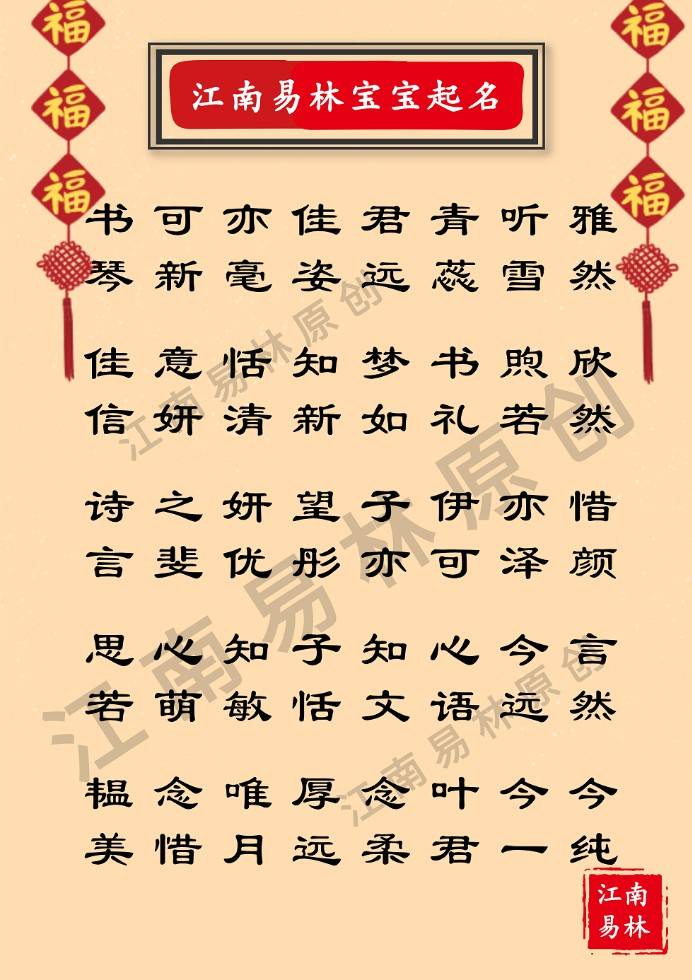 福
福
福
福
福
福
江南易林宝宝起名
书可亦佳君青听雅
琴新毫姿远蕊雪然
佳意恬知梦书煦欣
信妍清新如礼若然
诗之妍望子伊亦惜
言斐优彤亦可泽颜
思心知子知心今言
若萌敏恬文语远然
韫念唯厚念叶今今
美惜月远柔君一纯
江南易林原创
江南易林原创
江南易林原创
江南
易林